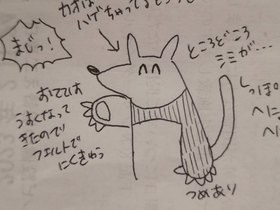 カオは
ハゲちゃってると
まじっ!
ところどころ
シミが…
おてては
うすくなって
きたので
フェルトで
にくきゅう
しっぽ
へに
へに
つめあり